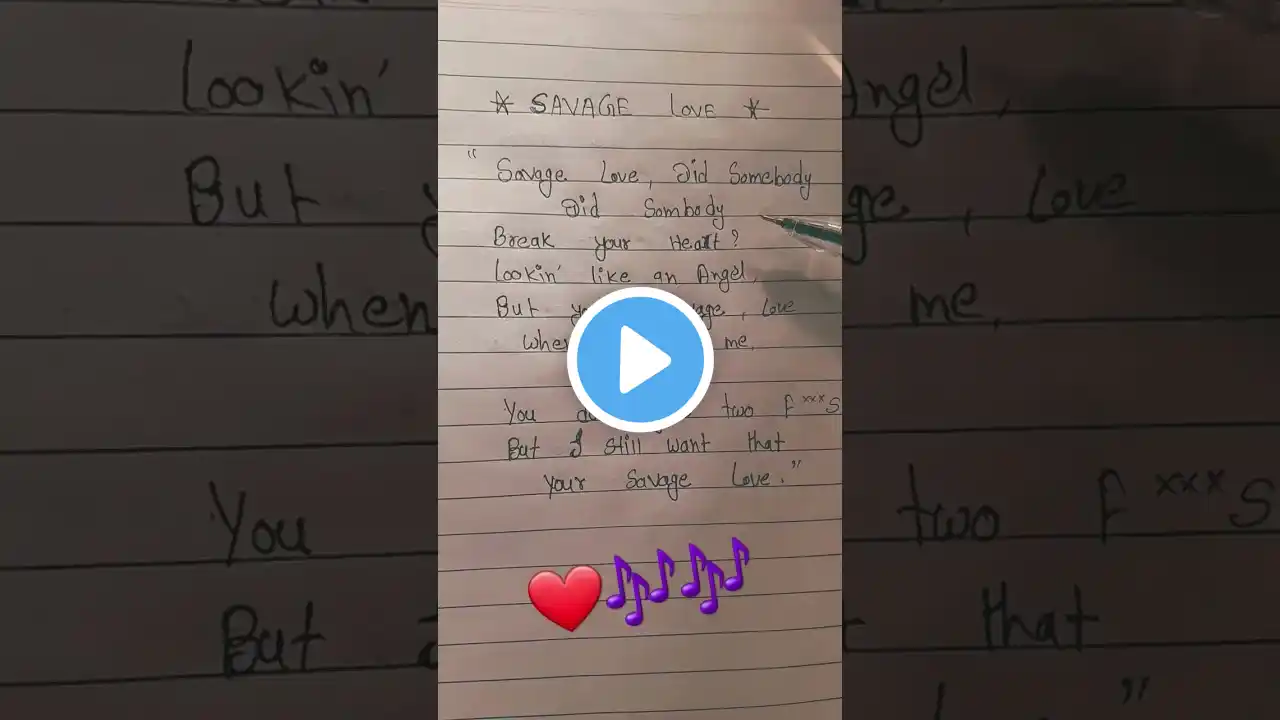 * SAVAGE LOVE *
" Savage Love, Did Somebody
Did Sombody
Break your Heart?
Lookin' like an Angel,
But ge, Love
When me,
You two f***s
But I still want that
your Savage Love."
Lookin' Angel,
But ge, Love
When me,
You two f***s
But that